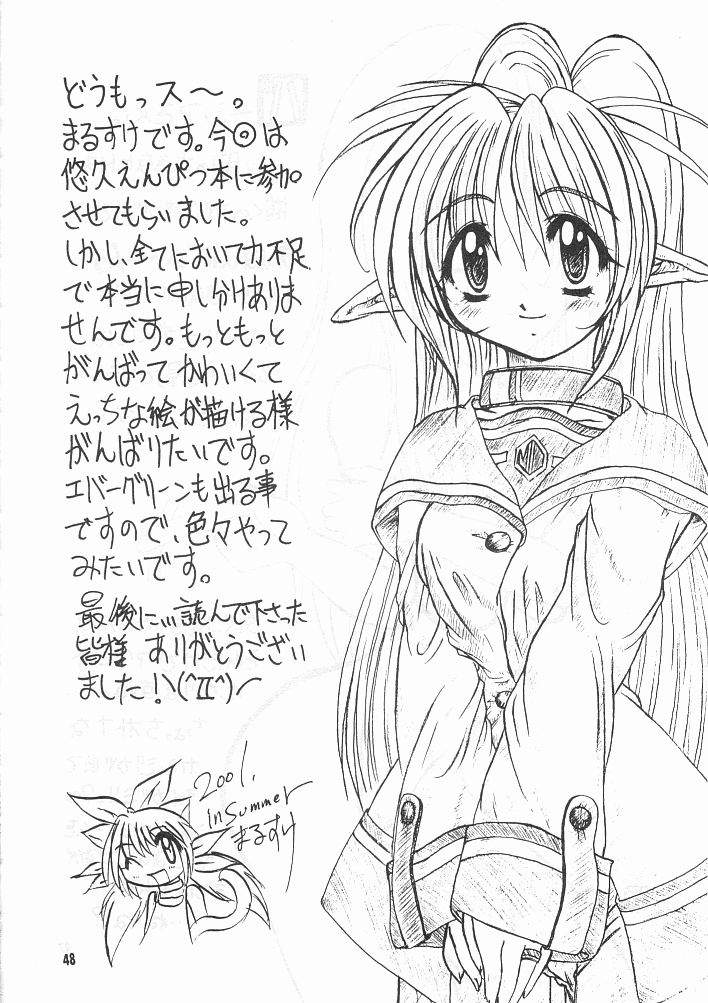 どうもっス～。
まるすけです。今回は
悠久えんぴつ本に参加
させてもらいました。
しかし、全てにおいて力不足
で本当に申し分けありま
せんです。もっともっと
がんばってかわいくて
えっちな絵が描ける様
がんばりたいです。
エバーグリーンも出る事
ですので、色々やって
みたいです。
最後に…読んで下さった
皆様 ありがとうござい
ました!ヽ(^II^)ノ
2001.
in Summer
まるすけ
48